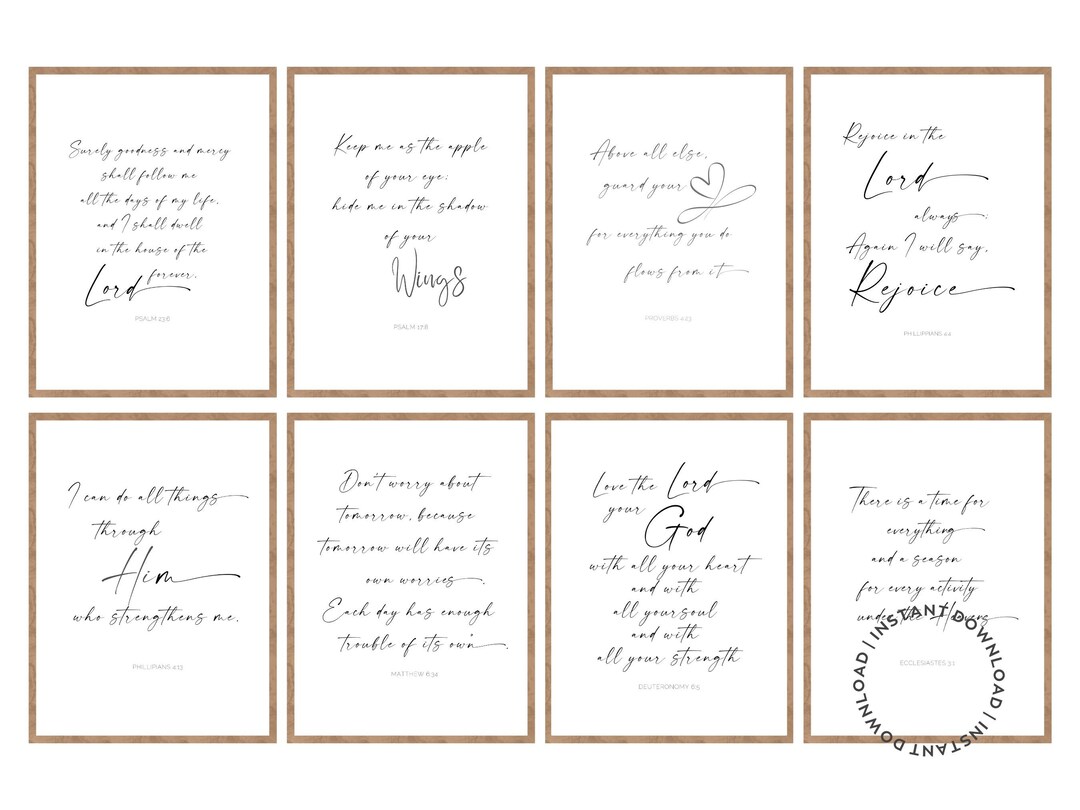 Surely goodness and mercy
shall follow me
all the days of my life,
and I shall dwell
in the house of the
Lord forever.
PSALM 23:6
Keep me as the apple
of your eye;
hide me in the shadow
of your
Wings
PSALM 17:8
Above all else,
guard your
for everything you do
flows from it
PROVERBS 4:23
Rejoice in the
Lord
always;
Again I will say,
Rejoice
PHILLIPPIANS 4:4
I can do all things
through
Him
who strengthens me.
PHILLIPIANS 4:13
Don't worry about
tomorrow, because
tomorrow will have its
own worries.
Each day has enough
trouble of its own.
MATTHEW 6:34
Love the Lord
your
God
with all your heart
and with
all your soul
and with
all your strength
DEUTERONOMY 6:5
There is a time for
everything
and a season
for every activity
under the Heavens
ECCLESIASTES 3:1
INSTANT DOWNLOAD | INSTANT DOWNLOAD |